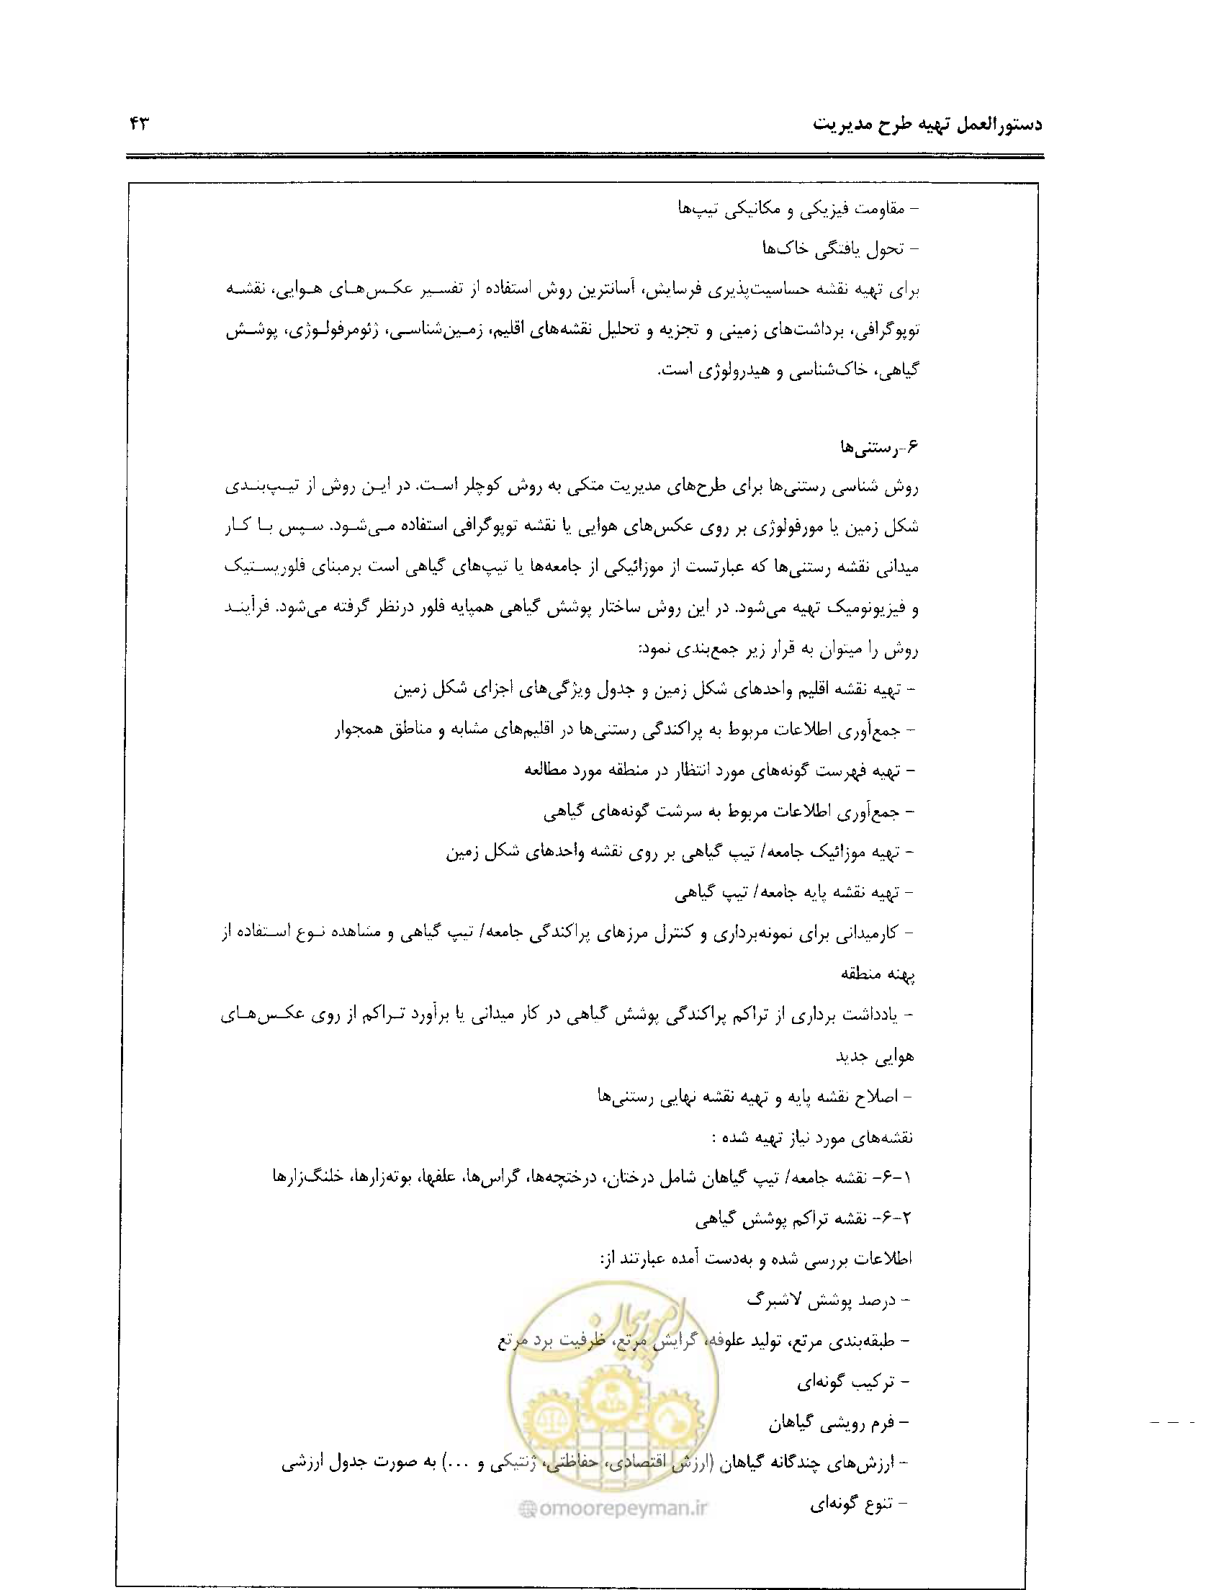 دستورالعمل تهیه طرح مدیریت ۴۳
- مقاومت فیزیکی و مکانیکی تیپ‌ها
- تحول یافتگی خاک‌ها
برای تهیه نقشه حساسیت‌پذیری فرسایش، آسانترین روش استفاده از تفسیر عکس‌های هوایی، نقشه
توپوگرافی، برداشت‌های زمینی و تجزیه و تحلیل نقشه‌های اقلیم، زمین‌شناسی، ژئومرفولوژی، پوشش
گیاهی، خاک‌شناسی و هیدرولوژی است.
۶-رستنی‌ها
روش شناسی رستنی‌ها برای طرح‌های مدیریت متکی به روش کوچلر است. در این روش از تیپ‌بندی
شکل زمین یا مورفولوژی بر روی عکس‌های هوایی یا نقشه توپوگرافی استفاده می‌شود. سپس با کار
میدانی نقشه رستنی‌ها که عبارتست از موزائیکی از جامعه‌ها یا تیپ‌های گیاهی است برمبنای فلوریستیک
و فیزیونومیک تهیه می‌شود. در این روش ساختار پوشش گیاهی همپایه فلور درنظر گرفته می‌شود. فرآیند
روش را میتوان به قرار زیر جمع‌بندی نمود:
- تهیه نقشه اقلیم واحدهای شکل زمین و جدول ویژگی‌های اجزای شکل زمین
- جمع‌آوری اطلاعات مربوط به پراکندگی رستنی‌ها در اقلیم‌های مشابه و مناطق همجوار
- تهیه فهرست گونه‌های مورد انتظار در منطقه مورد مطالعه
- جمع‌آوری اطلاعات مربوط به سرشت گونه‌های گیاهی
- تهیه موزائیک جامعه/ تیپ گیاهی بر روی نقشه واحدهای شکل زمین
- تهیه نقشه پایه جامعه/ تیپ گیاهی
- کارمیدانی برای نمونه‌برداری و کنترل مرزهای پراکندگی جامعه/ تیپ گیاهی و مشاهده نوع استفاده از
پهنه منطقه
- یادداشت برداری از تراکم پراکندگی پوشش گیاهی در کار میدانی یا برآورد تراکم از روی عکس‌های
هوایی جدید
- اصلاح نقشه پایه و تهیه نقشه نهایی رستنی‌ها
نقشه‌های مورد نیاز تهیه شده :
۶-۱- نقشه جامعه/ تیپ گیاهان شامل درختان، درختچه‌ها، گراس‌ها، علفها، بوته‌زارها، خلنگ‌زارها
۶-۲- نقشه تراکم پوشش گیاهی
اطلاعات بررسی شده و به‌دست آمده عبارتند از:
- درصد پوشش لاشبرگ
- طبقه‌بندی مرتع، تولید علوفه، گرایش مرتع، ظرفیت برد مرتع
- ترکیب گونه‌ای
- فرم رویشی گیاهان
- ارزش‌های چندگانه گیاهان (ارزش اقتصادی، حفاظتی، ژنتیکی و ...) به صورت جدول ارزشی
- تنوع گونه‌ای
امور پیمان
omoorepeyman.ir